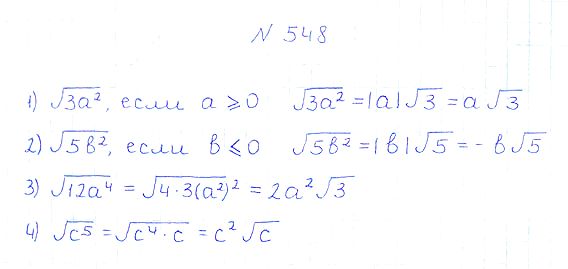 N 548
1) √3a², если a ⩾ 0 √3a² = |a|√3 = a√3
2) √5b², если b ⩽ 0 √5b² = |b|√5 = - b√5
3) √12a⁴ = √4·3(a²)² = 2a²√3
4) √c⁵ = √c⁴·c = c²√c